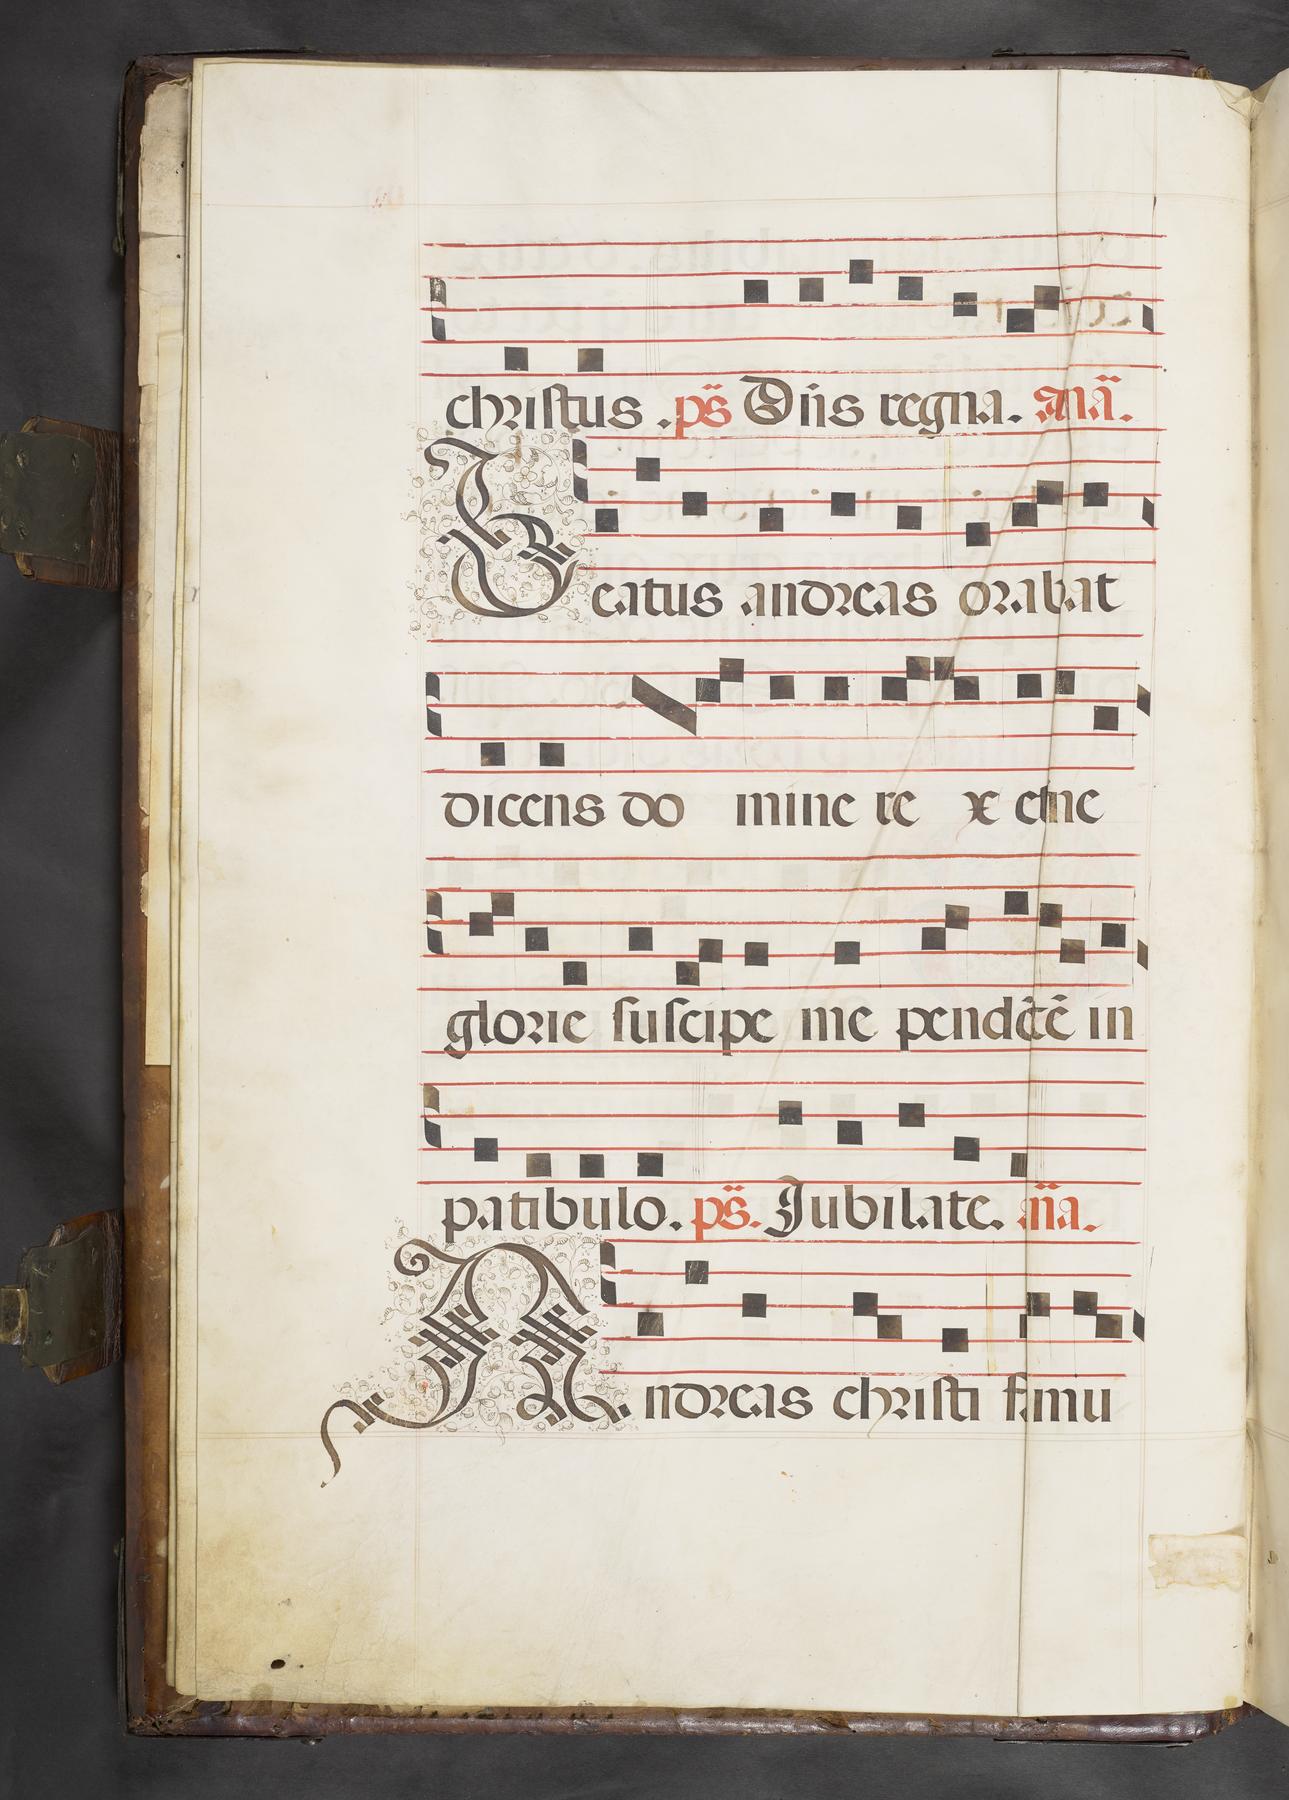 christus . ps̄ Dñs regna. anā.
Beatus andreas orabat
dicens do mine re x etne
glorie suscipe me pendētē in
patibulo. ps̄. Jubilate. añā.
Andreas christi famu